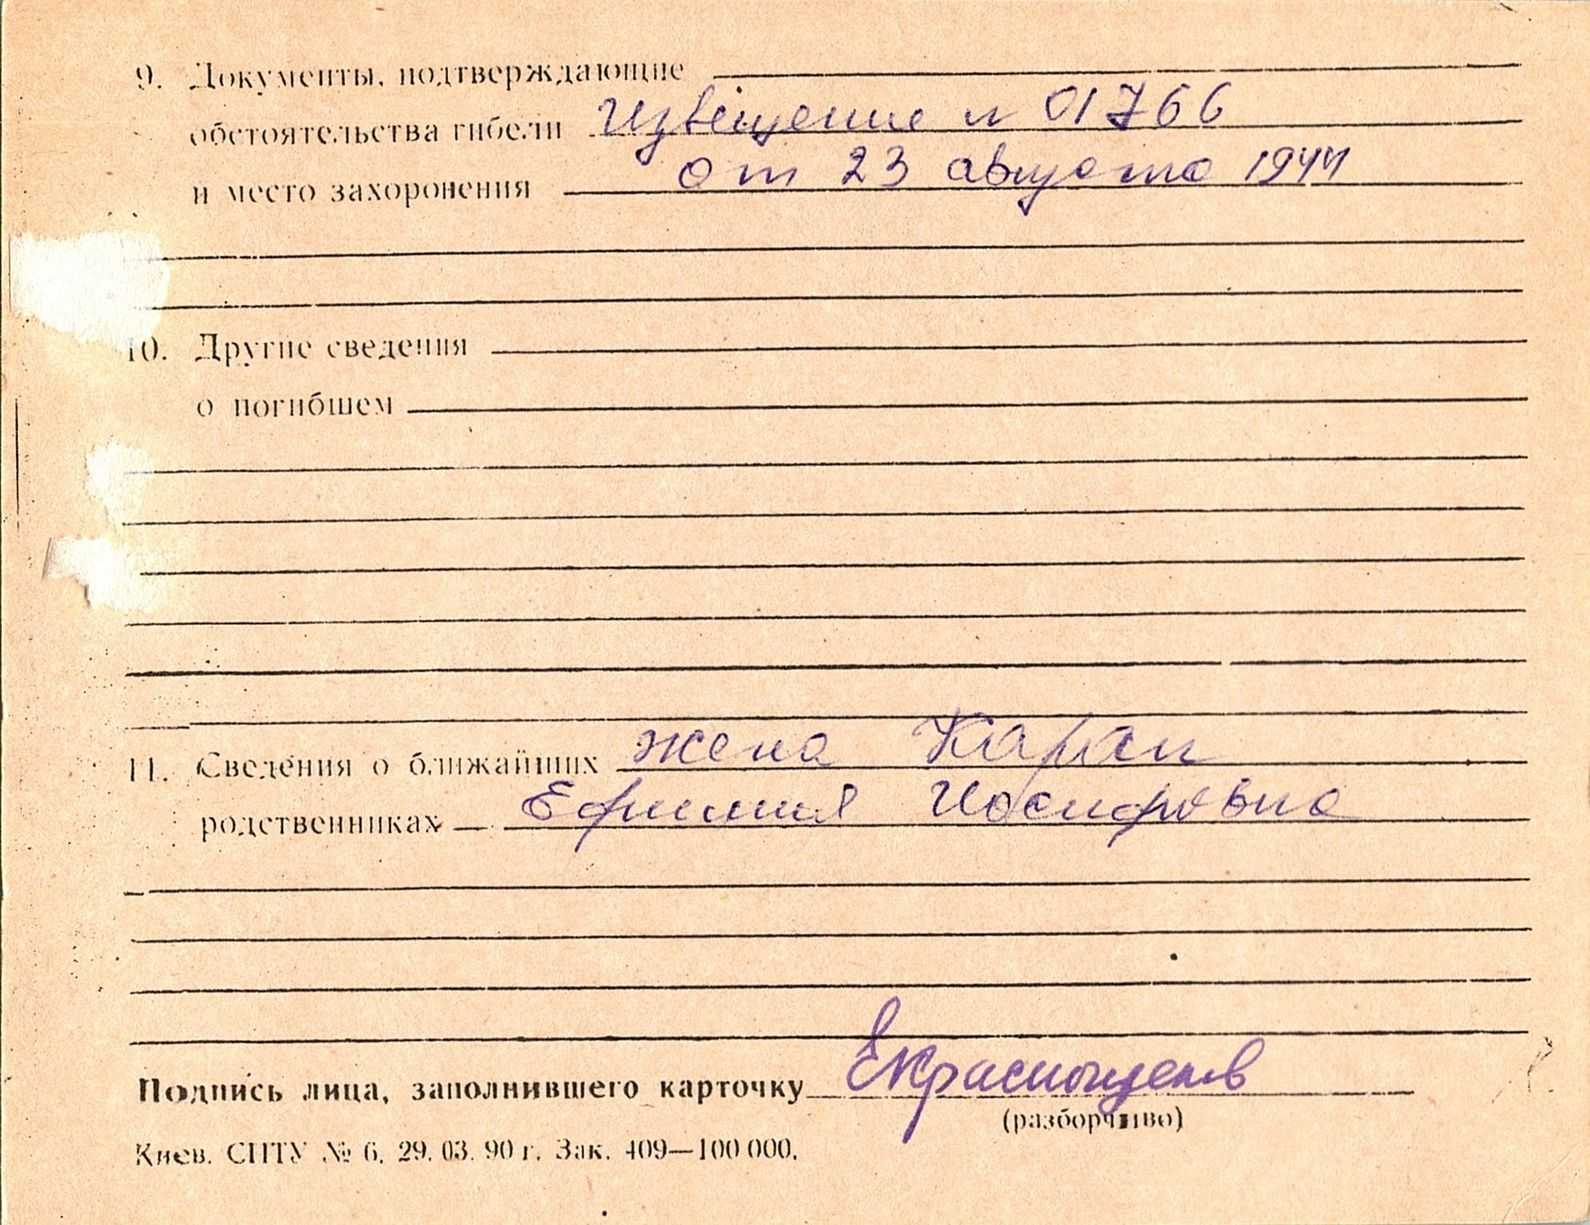 9. Документы, подтверждающие
обстоятельства гибели Извещение н 01766
и место захоронения от 23 августа 1944
10. Другие сведения
о погибшем
11. Сведения о ближайших жена Каран
родственниках Ефимия Иосифовна
Подпись лица, заполнившего карточку ЕКраснощеков
(разборчиво)
Киев. СПТУ № 6. 29. 03. 90 г. Зак. 409—100 000.